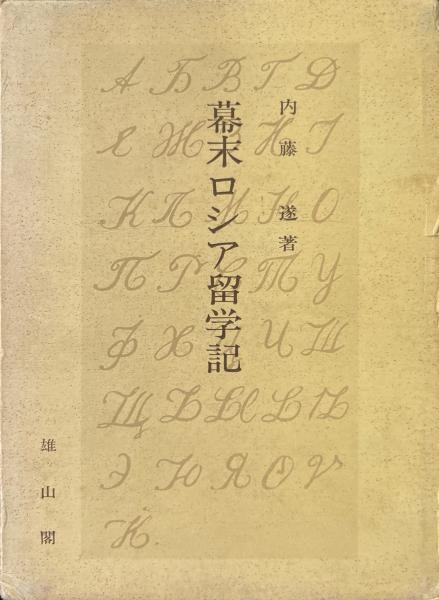 内藤 遂著
幕末ロシア留学記
雄山閣
А Б В Г Д
Е Ж З И І
К Л М Н О
П Р С Т У
Ф Х Ц Ч Ш
Щ Ъ Ы Ь Ѣ
Э Ю Я Ѳ Ѵ
Й.